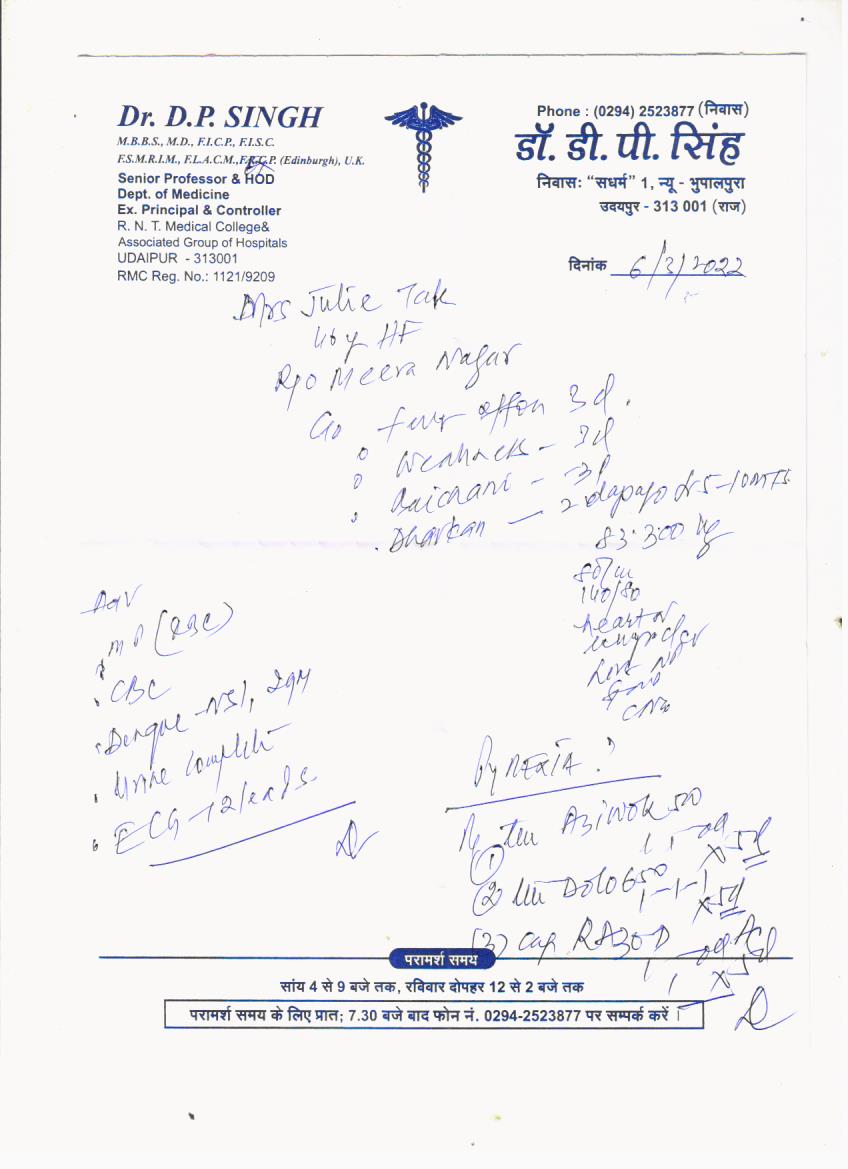 Dr. D.P. SINGH
M.B.B.S., M.D., F.I.C.P., F.I.S.C.
F.S.M.R.I.M., F.L.A.C.M., F.R.C.P. (Edinburgh), U.K.
Senior Professor & HOD
Dept. of Medicine
Ex. Principal & Controller
R. N. T. Medical College&
Associated Group of Hospitals
UDAIPUR - 313001
RMC Reg. No.: 1121/9209
Phone : (0294) 2523877 (निवास)
डॉ. डी. पी. सिंह
निवासः “सधर्म” 1, न्यू - भुपालपुरा
उदयपुर - 313 001 (राज)
दिनांक 6/3/2022
Mrs Julie Tak
46y HF
R/o Meera Nagar
C/o fever off on 3d.
Weakness - 3d
Baichani - 3d
Dharkan - 2 days ago for 5-10 MTS
83.300 kg
80/m
140/80
heart N
lungs clear
CNS
Adv
MP (QBC)
CBC
Dengue NS1, IgM
Urine complete
ECG 12 leads
PYREXIA ?
Rx
(1) tab AZIWOK 500
1 1 - od x 5d
(2) tab DOLO 650
1-1-1 x 5d
(3) cap RAZO D
1 - od AC
x 5d
परामर्श समय
सांय 4 से 9 बजे तक, रविवार दोपहर 12 से 2 बजे तक
परामर्श समय के लिए प्रात; 7.30 बजे बाद फोन नं. 0294-2523877 पर सम्पर्क करें ।